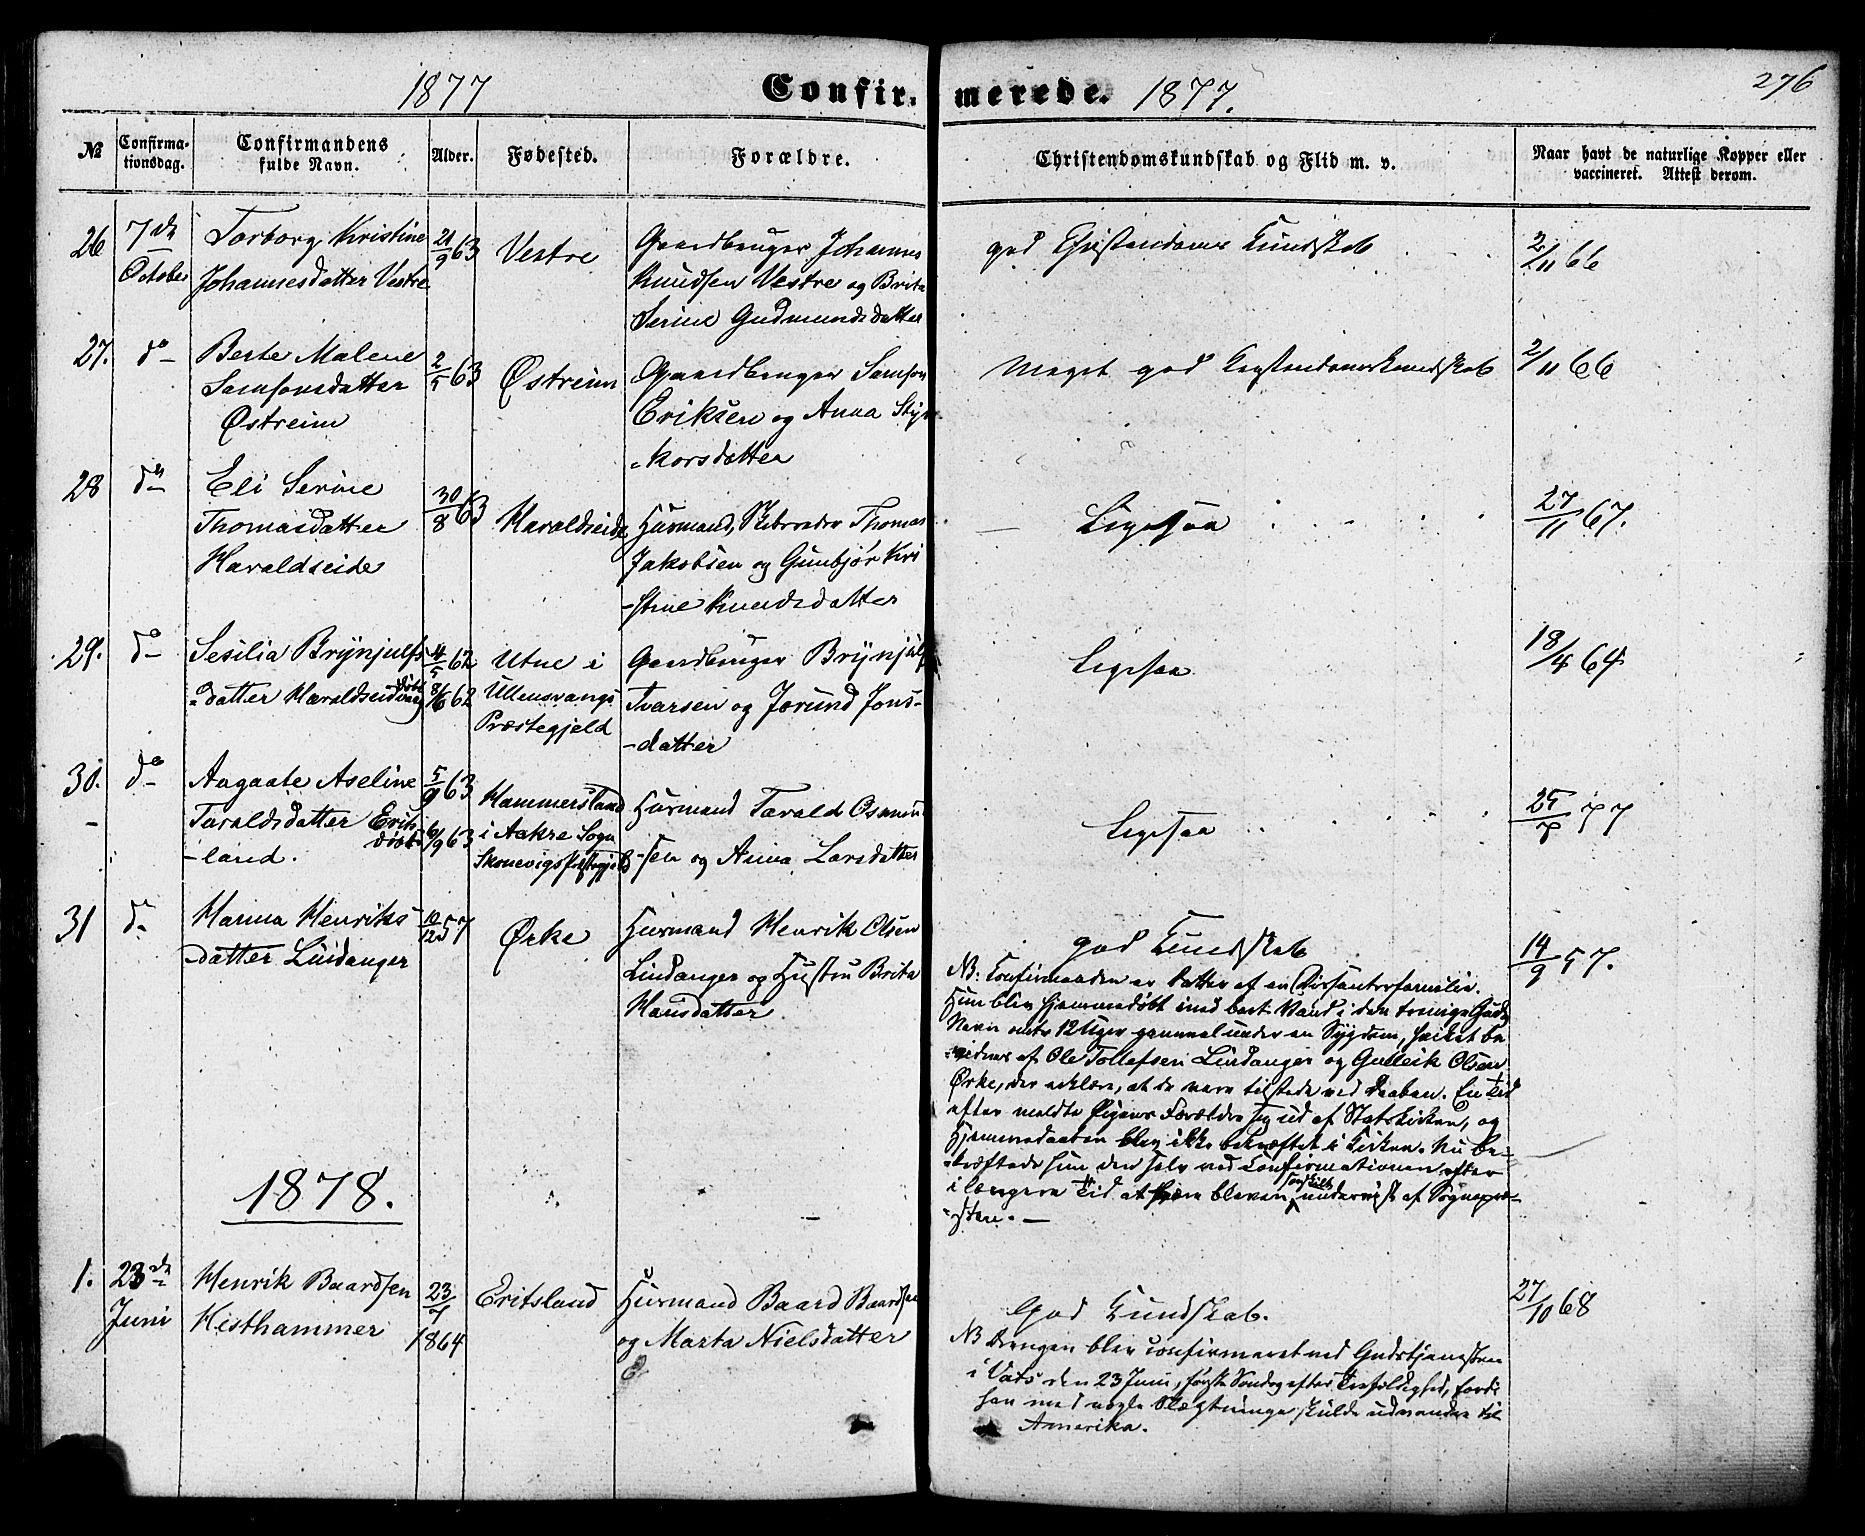 1877 Confir- merede. 1877. 276
№ Confirma-tionsdag. Confirmandens fulde Navn. Alder. Fødested. Forældre. Christendomskundskab og Flid m. v. Naar havt de naturlige Kopper eller vaccineret. Attest derom.
26 7de October
Torborg Kristine
Johannesdatter Vestre
21/9 63
Vestre
Gaardbruger Johannes
Knudsen Vestre og Brita
Serine Gudmundsdatter
god Christendoms Kundskab
2/11 66
27. do
Berte Malene
Samsonsdatter
Østreim
2/5 63
Østreim
Gaardbruger Samson
Eriksen og Anna Styr
-korsdatter
Meget god Kristendomskundskab
2/11 66
28 do
Eli Serine
Thomasdatter
Haraldseide
30/8 63
Haraldseide
Husmand, Skibsreder Thomas
Jakobsen og Gunbjør Kri
-stine Knudsdatter
Ligesaa
27/11 67.
29. do
Sesilia Brynjulfs
-datter Haraldseidvaag
4/5 62
døbt 8/6 62
Utne i
Ullensvangs
Præstegjeld
Gaardbruger Brynjulf
Ivarsen og Jorund Jons-
-datter
Ligesaa
18/4 64
30. do
Aagaate Aseline
Taraldsdatter Erits
-land.
døbt
5/9 63
6/9 63
Hammersland
i Aakre Sogn
Skonevigs Præstegjeld
Husmand Tarald Osmun
-sen og Anna Larsdatter
Ligesaa
25/7 77
31 do
Marina Henriks
-datter Lindanger
10/12 57
Ørke
Husmand Henrik Olsen
Lindanger og Hustru Brita
Hansdatter
god Kundskab
14/9 57.
NB: Confirmanden er Datter af en Dissenterfamilie.
Hun blev hjemmedøbt med bart Vand i den treenige Guds
Navn omtr 12 Uger gammel under en Sygdom, hvilket be
-vidnes af Ole Tollefsen Lindanger og Gulleik Olsen
Ørke, der erklære, at de vare tilstede ved Daaben. En Tid
efter meldte Pigens Forældre sig ud af Statskirken, og
Hjemmedaaben blev ikke bekræftet i Kirken. Nu be-
-kræftede hun den selv ved Confirmationen efter
i længere Tid at være bleven særskilt undervist af Sognepræ-
-sten. —
1878.
1. 23de Juni
Henrik Baardsen
Kisthammer
23/7 1864
Eritsland
Husmand Baard Baardsen
og Marta Nielsdatter
E.
God Kundskab.
27/10 68
NB Drengen blev confirmeret ved Gudstjenesten
i Vats den 23 Juni, første Søndag efter Trefoldighed, fordi
han med nogle Slægtninge skulde udvandre til
Amerika.